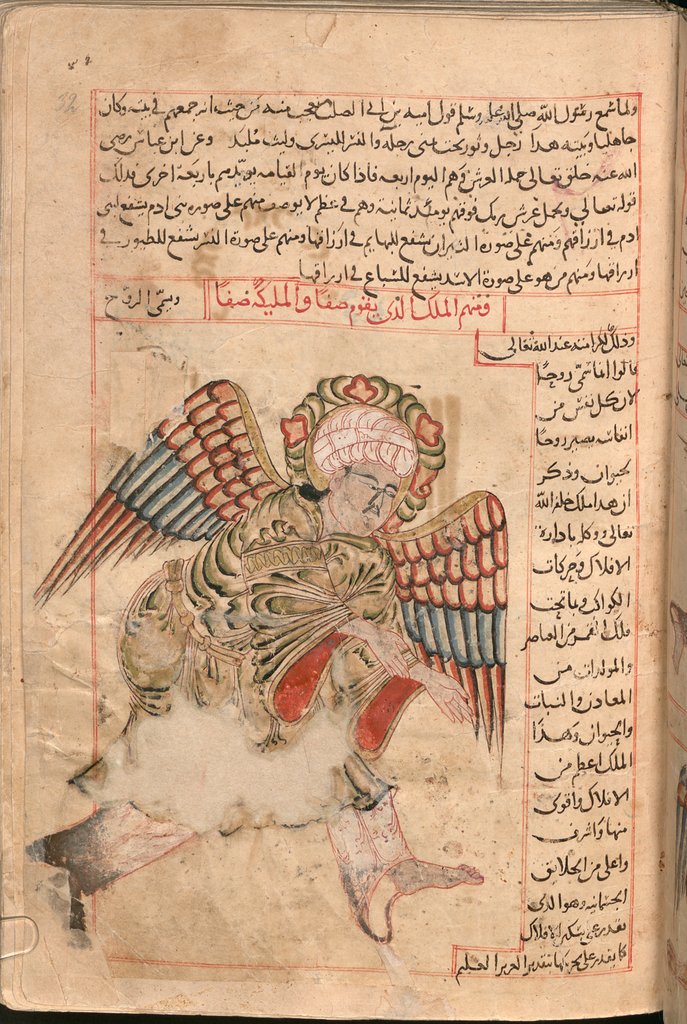 ٣٢
32
ولما سمع رسول الله صلى الله عليه وسلم قول اميه بن ابي الصلت تعجب منه من حيث انه جمعهم في بيته وكان
جاهليا وبيته هذا رجل وثور تحت رجله والنسر لليسرى وليث مُلبد وعن ابن عباس رضى
الله عنه خلق تعالى حملة العرش وهم اليوم اربعه فاذا كان يوم القيامه يويدهم باربعة اخرى فذلك
قوله تعالى ويحمل عرش ربك فوقهم يومئذ ثمانية وهم في عظم لا يوصف منهم على صوره بنى ادم يشفع لبنى
ادم في ارزاقهم ومنهم على صورة الثيران يشفع للبهايم في ارزاقها ومنهم على صورة النسر يشفع للطيور في
ارزاقها ومنهم من هو على صورة الاسد يشفع للسباع في ارزاقها
فمنهم الملك الذى يقوم صفا والمليكه صفا ويسمى الروح
وذلك لكرامته عند الله تعالى
قالوا انما سمى روحا
لان كل نفس من
انفاسه يصير روحا
لحيوان وذكر
ان هذا ملك خلقه الله
تعالى ووكل بادارة
الافلاك وحركات
الكواكب وما تحت
فلك القمر من العناصر
والمولدات من
المعادن والنبات
والحيوان وهذا
الملك اعظم من
الافلاك واقوى
منها واشرف
واعلى من الخلائق
الجسمانيه وهو الذى
يقدر على تسكين الافلاك
كما يقدر على تحريكها بتقدير العزيز العليم